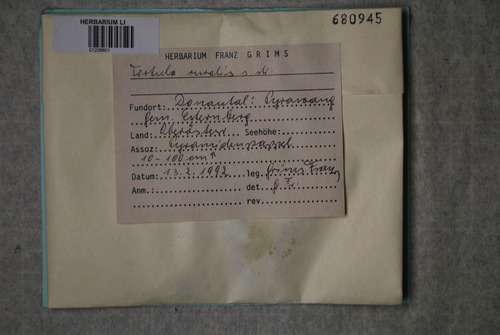 HERBARIUM LI
01209901
680945
HERBARIUM FRANZ GRIMS
Tortula ruralis s. str.
Fundort: Donautal: Pyrawang
Gem. Esternberg
Land: Oberösterr. Seehöhe:
Assoz: Pyramidenpappel
10-100 cm
Datum: 13.2.1993 leg. Grims Franz
Anm.: det. G. F.
rev.